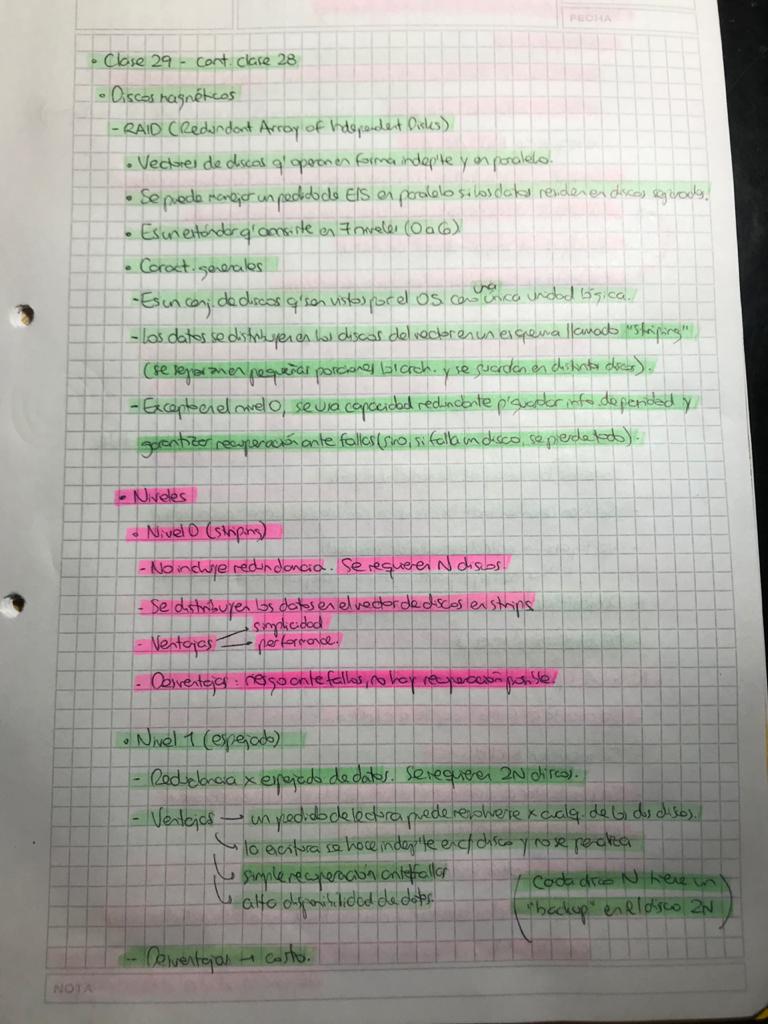 FECHA
• Clase 29 - cont. clase 28
• Discos magnéticos
- RAID (Redundant Array of Independent Disks)
• Vectores de discos q' operan en forma indep'te y en paralelo.
• Se puede manejar un pedido de E/S en paralelo si los datos residen en discos separados.
• Es un estándar q' consiste en 7 niveles (0 a 6)
• Caract. generales
- Es un conj. de discos q' son vistos por el OS como una única unidad lógica.
- Los datos se distribuyen en los discos del vector en un esquema llamado "striping"
(se separan en pequeñas porciones los arch. y se guardan en distintos discos).
- Excepto en el nivel 0, se usa capacidad redundante p' guardar info de paridad y
garantizar recuperación ante fallas (sino, si falla un disco, se pierde todo).
• Niveles
• Nivel 0 (striping)
- No incluye redundancia. Se requieren N discos.
- Se distribuyen los datos en el vector de discos en strips
- Ventajas → simplicidad
→ performance.
- Desventajas: riesgo ante fallas, no hay recuperación posible
• Nivel 1 (espejado)
- Redundancia x espejado de datos. Se requieren 2N discos.
- Ventajas → un pedido de lectura puede resolverse x cualq. de los dos discos.
↳ la escritura se hace indep'te en c/ disco y no se penaliza
↳ simple recuperación ante fallas
↳ alta disponibilidad de datos.
(Cada disco N tiene un
"backup" en el disco 2N)
- Desventajas → costo.
NOTA